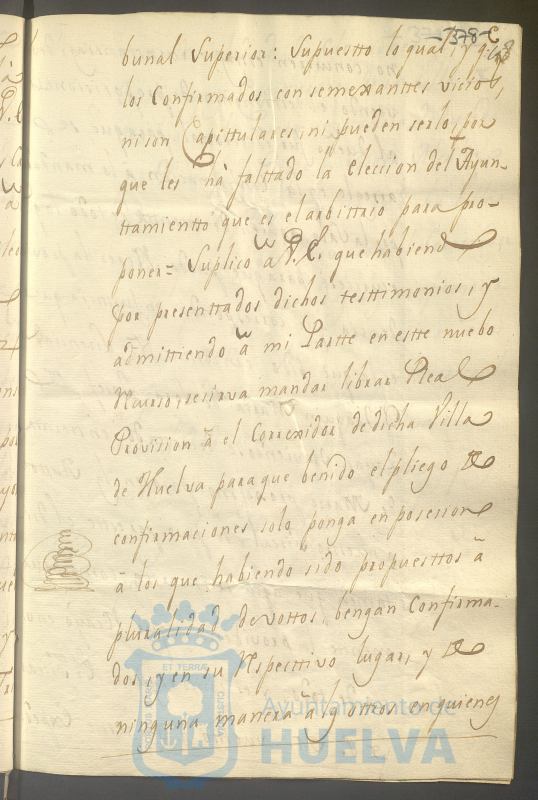 378
bunal Superior: Supuestto lo qual, y q.e
los Confirmados con semexanttes vicios,
ni son Capittulares, ni pueden serlo, por
que les há falttado la eleccion del Ayun-
ttamientto que es el arbittrio para pro-
poner= Suplico â V.E. que habiend
por presenttados dichos testtimonios, y
admittiendo â mi Partte en estte nuebo
Recurso, se sirva mandar librar Real
Provision â el Correxidor de dicha Villa
de Huelva para que benido el pliego de
confirmaciones solo ponga en possesion
â los que habiendo sido propuesttos â
pluralidad de vottos, bengan Confirma-
dos, y en su Respecttivo lugar, y de
ninguna manera â los ottros en quienes
Ayuntamiento de
HUELVA
ET TERRÆ